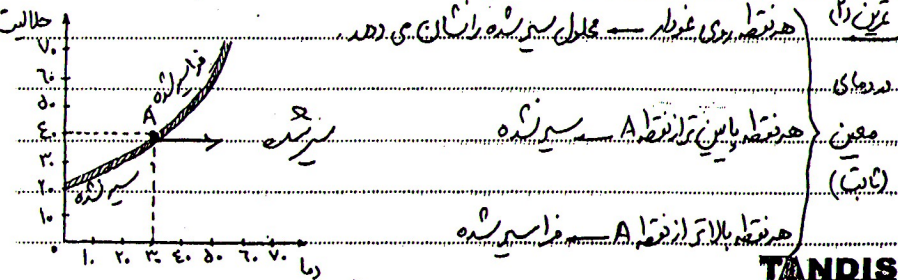 تمرین (۲)
در دمای
معین
(ثابت)
هر نقطه روی نمودار ← محلول سیر شده را نشان می دهد.
هر نقطه پایین تر از نقطه A ← سیر نشده
هر نقطه بالاتر از نقطه A ← فرا سیر شده
حلالیت
۷۰
۶۰
۵۰
۴۰
۳۰
۲۰
۱۰
۰
فرا سیر شده
A
سیر شده
سیر نشده
۱۰ ۲۰ ۳۰ ۴۰ ۵۰ ۶۰ ۷۰
دما
TANDIS